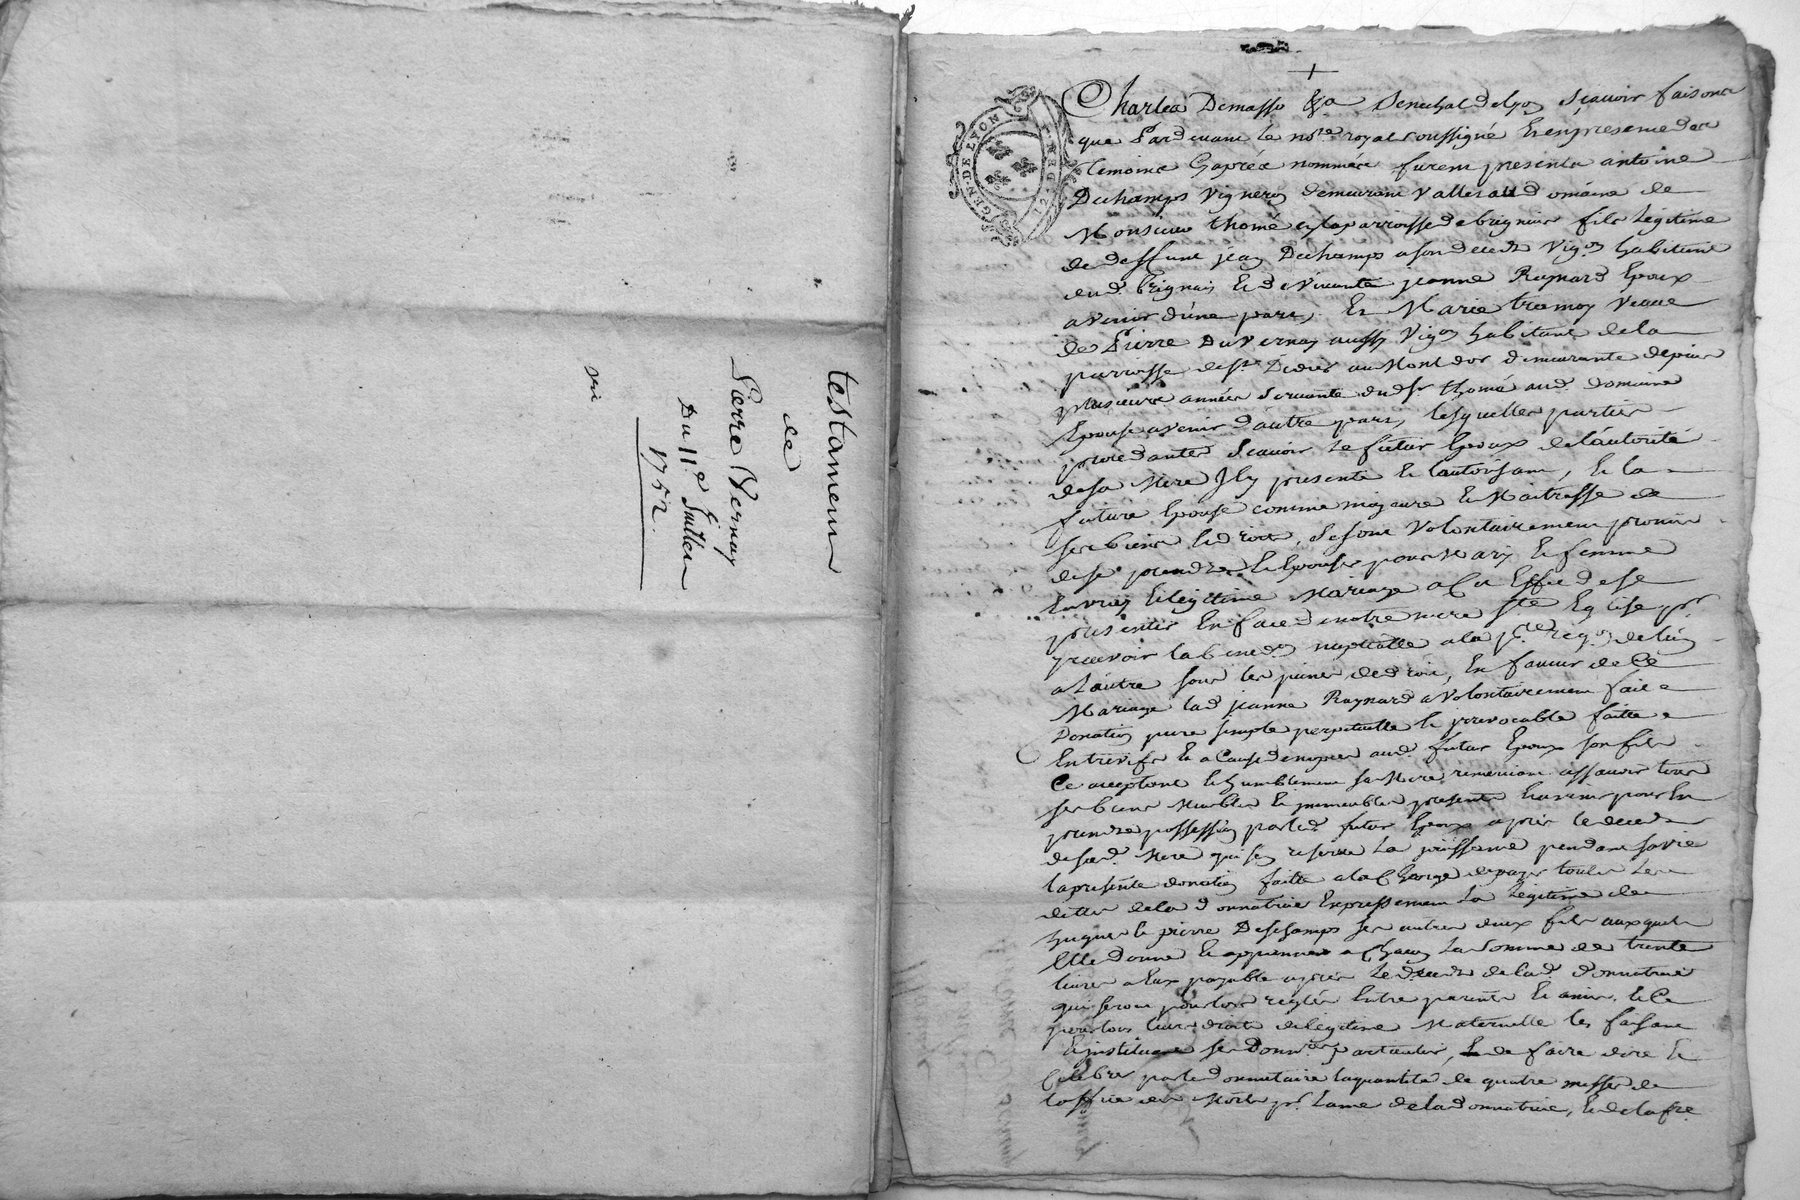 testament
de
Pierre Vernay
Du 11e Juillet
1752.
GEN. DE LYON
Charles Demasso &a Senechal de Lyon sçavoir faisons
que Pardevant le notre royal soussigné Et en presence des
temoins Cy apres nommés furent presents antoine
Duchamps Vigneron demeurant Valletaud domaine de
Monsieur thomé en la parroisse de brignais fils Legitime
de deffunt jean Duchamps a son deceds Vigon habitant
dud. brignais Et de Vivante jeanne Raynard Epoux
avenir d'une part, Et Marie tramoy veuve
de Pierre Duvernay aussy Vigon habitant de la
parroisse de st Didier au Mont dor demeurante depuis
plusieurs années Servante du dsr thomé aud. domaine
Epouse avenir d'autre part, lesquelles parties
procedantes Scavoir le futur Epoux de l'autorité
de sa Mere Icy presente Et l'autorisant, Et la
future Epouse comme majeure Et Maitresse de
ses biens Et droits, se sont Volontairement promis
de se prendre Et Epouser pour Mary Et femme
En vray Et legitime Mariage a Cet Effet de se
presenter En face de notre mere ste Eglise pr
y recevoir la bened.on nuptialle a la pre reqon de l'un
a l'autre sous les peines de droit, En faveur de Ce
Mariage lad jeanne Raynard a Volontairement fait
Donation pure simple perpetuelle Et irrevocable faitte
Entrevifs Et a Cause de nopces aud. futur Epoux son fils
Ce acceptant Et humblement sa Mere remerciant assavoir tous
ses biens Meubles Et immeubles presents Et avenir pour En
prendre possession par led. futur Epoux après le deceds
de sad. Mere qui s'en reserve La jouissance pendant sa vie
la presente donation faitte a la Charge de payer toutes Les
dettes de la donnatrice Expressement La Legitime de
hugues Et pierre Deschamps ses autres deux fils auxquels
Elle donne Et appensionne a Chacun La somme de trente
livres a Eux payable après Le deceds de lad. donnatrice
qui seront pour lors reglés Entre parents Et amis, Et Ce
pour tous leurs droits de legitime Maternelle les faisant
Et instituant ses Donnres particuliers, Et de faire dire Et
Celebrer par le donnataire la quantité de quatre messes de
l'office des Morts pr L'ame de la donnatrice, Et de la fre